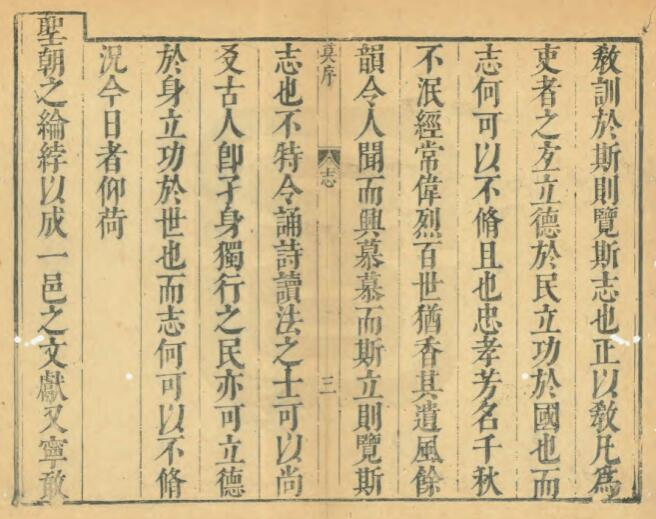 敎訓於斯則覽斯志也正以敎凡爲
吏者之立德於民立功於國也而
志何可以不脩且也忠孝芳名千秋
不泯經常偉烈百世猶香其遺風餘
韻令人聞而興慕慕而斯立則覽斯
序 志 三
志也不特令誦詩讀法之士可以尚
友古人卽孑身獨行之民亦可立德
於身立功於世也而志何可以不脩
況今日者仰荷
聖朝之綸綍以成一邑之文獻又寧敢